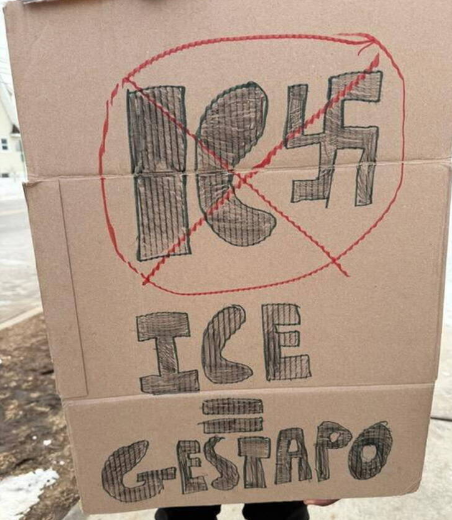 IC卐
ICE
=
GESTAPO